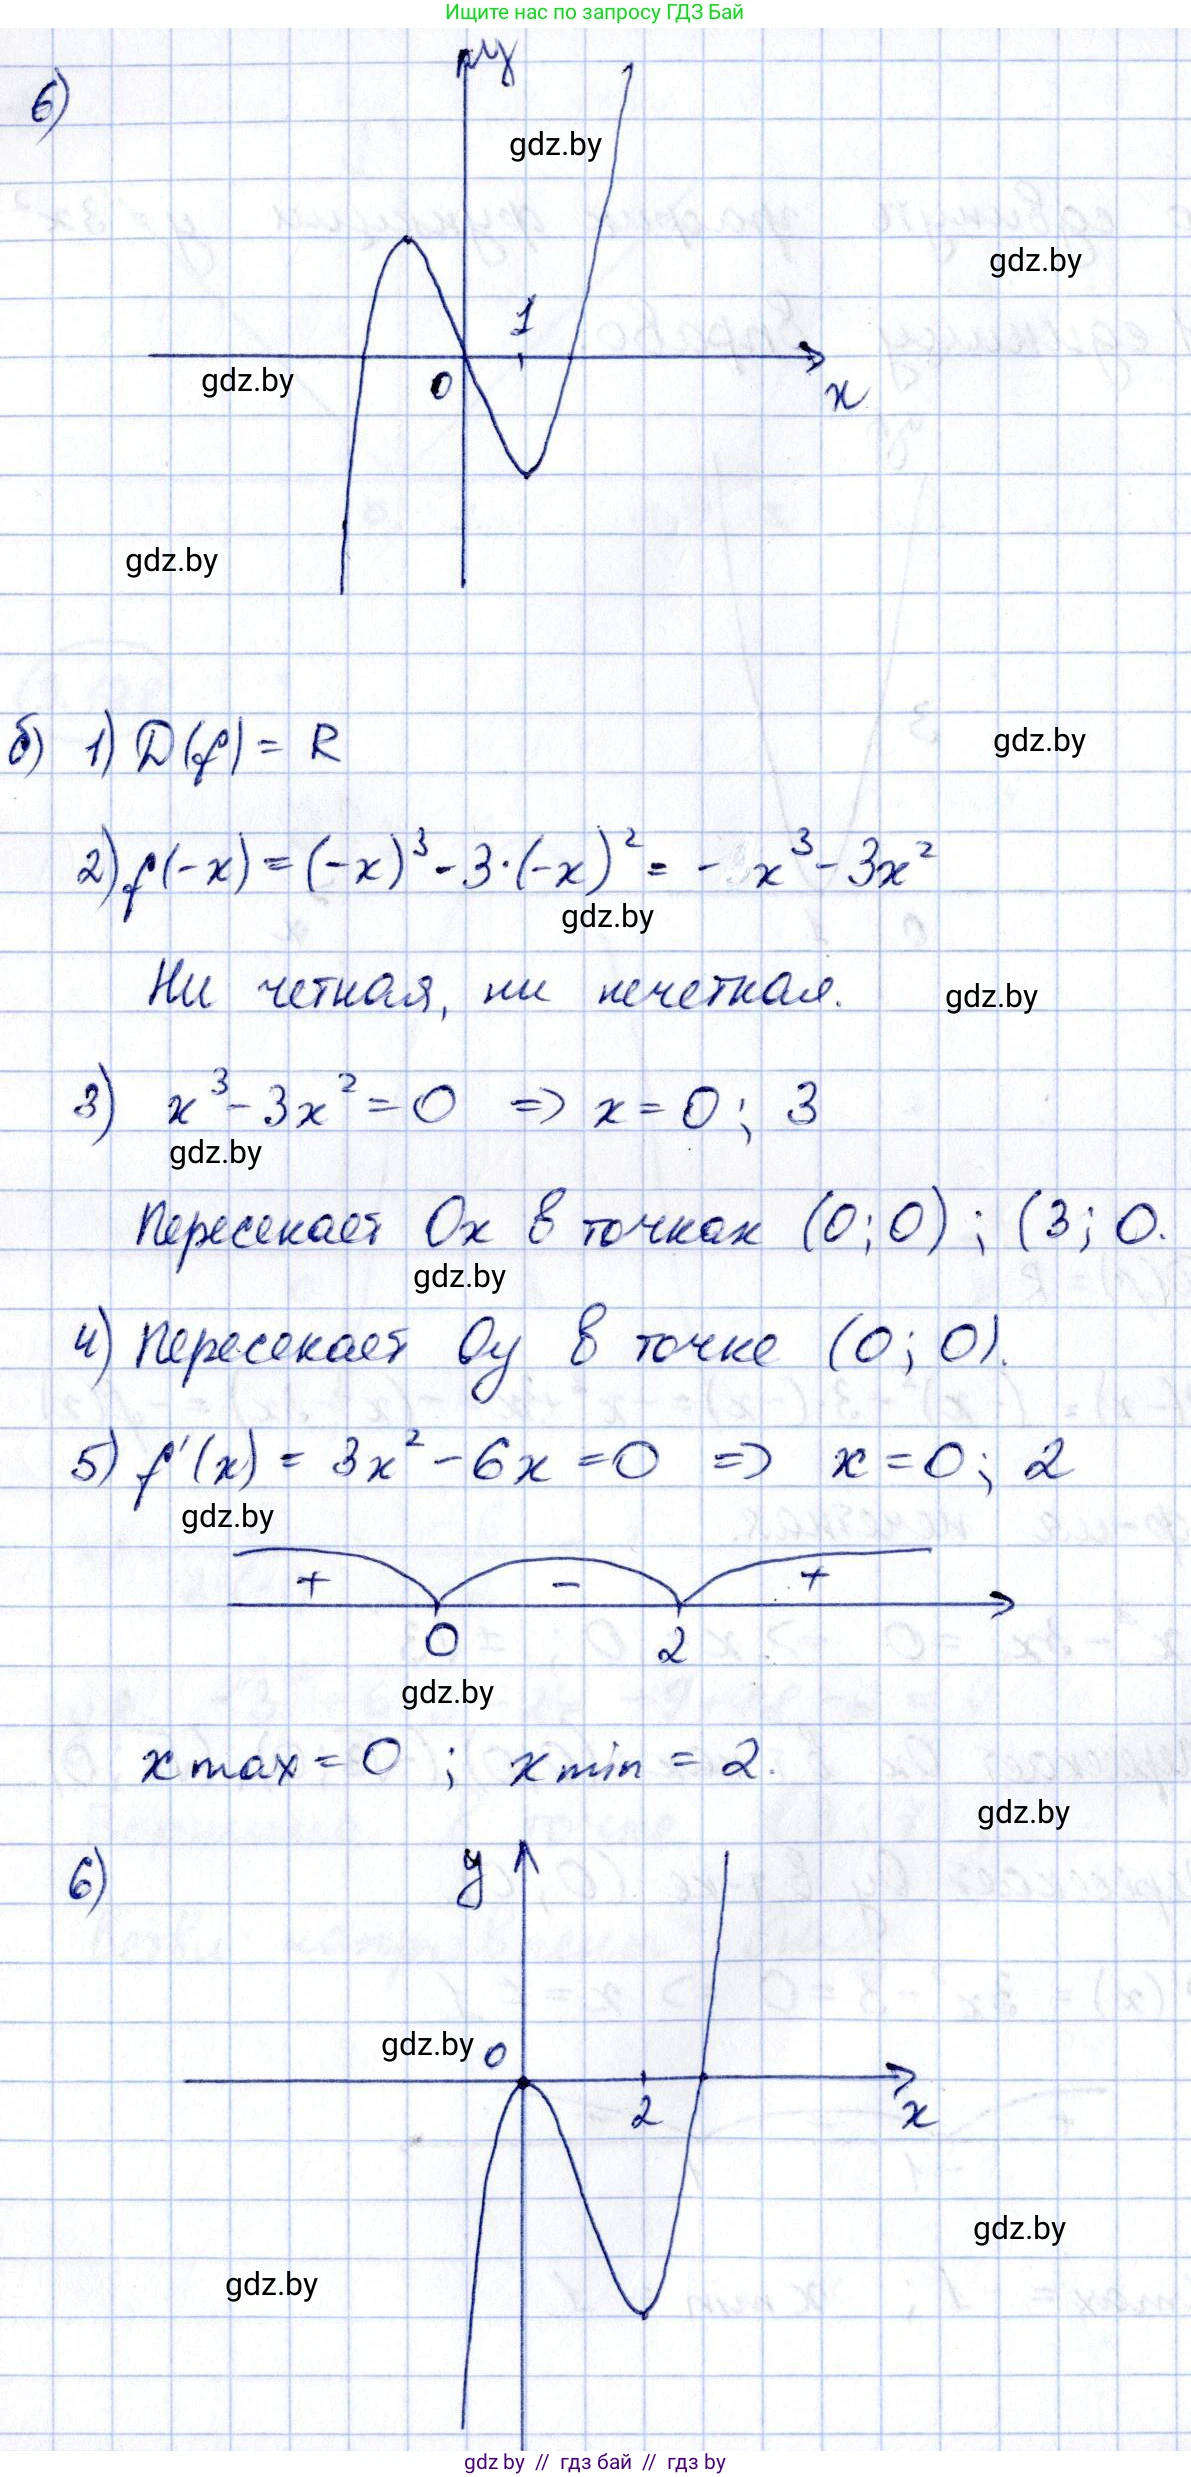 Ищите нас по запросу ГДЗ Бай
6)
y
gdz.by
gdz.by
1
gdz.by
0
x
gdz.by
б) 1) D(f) = R
gdz.by
2) f(-x) = (-x)³ - 3·(-x)² = - x³ - 3x²
gdz.by
Ни четная, ни нечетная.
gdz.by
3) x³ - 3x² = 0 => x = 0; 3
gdz.by
Пересекает Ox в точках (0; 0); (3; 0.
gdz.by
4) Пересекает Oy в точке (0; 0).
5) f'(x) = 3x² - 6x = 0 => x = 0; 2
gdz.by
+ - +
0 2
gdz.by
x max = 0; x min = 2.
gdz.by
6)
y
gdz.by
0
2
x
gdz.by
gdz.by
gdz by // гдз бай // гдз by